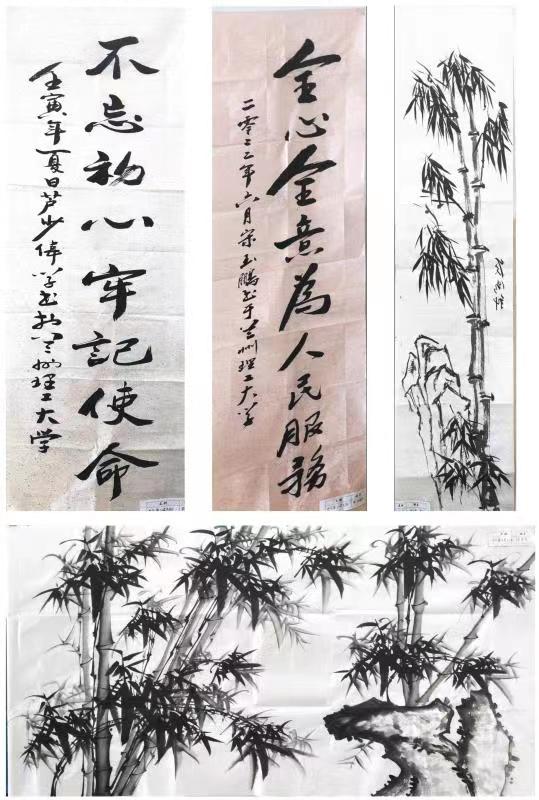 不忘初心牢記使命
壬寅年夏日芦少偉学书於兰州理工大学
全心全意為人民服務
二零二二年六月宋玉鵬书于兰州理工大学